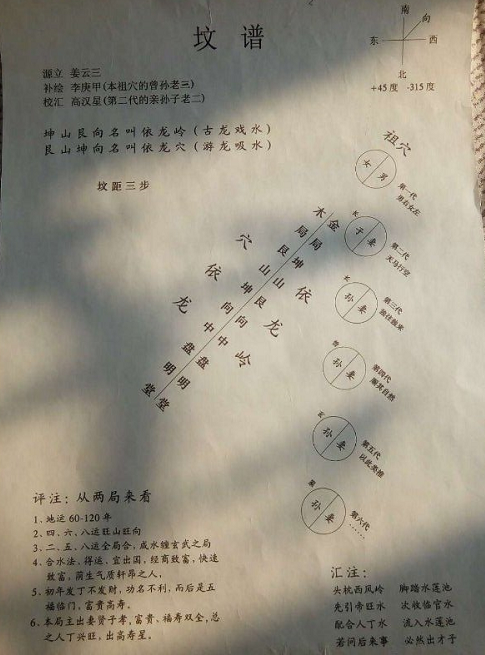 坟 谱
南
向
东
西
北
+45度 -315度
源立 姜云三
补绘 李庚甲(本祖穴的曾孙老三)
校汇 高汉星(第二代的亲孙子老二)
坤山艮向名叫依龙岭(古龙戏水)
艮山坤向名叫依龙穴(游龙吸水)
坟距三步
祖穴
女 男
第一代
男右女左
子 妻
第二代
天马行空
孙 妻
第三代
孙 妻
第四代
顺其自然
孙 妻
第五代
以此类推
孙 妻
第六代
……
木局艮山坤向中盘明堂
金局坤山艮向中盘明堂
穴依龙
依龙岭
评注：从两局来看
1.地运60-120年
2.四、六、八运旺山旺向
3.二、五、八运全局合，成水缠玄武之局
4.合水法、得运、宜出国，经商致富，快速
致富，荫生气质轩昂之人，
5.初年发丁不发财，功名不利，而后是五
福临门，富贵高寿。
6.本局主出妻贤子孝，富贵、福寿双全，总
之人丁兴旺，出高寿星。
汇注：
头枕西风岭 脚踏水莲池
先引帝旺水 次收临官水
配合人丁水 流入水莲池
若问后来事 必然出才子